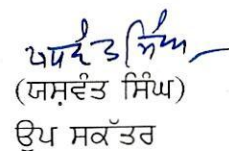 ਯਸ਼ਵੰਤ ਸਿੰਘ
(ਯਸ਼ਵੰਤ ਸਿੰਘ)
ਉਪ ਸਕੱਤਰ